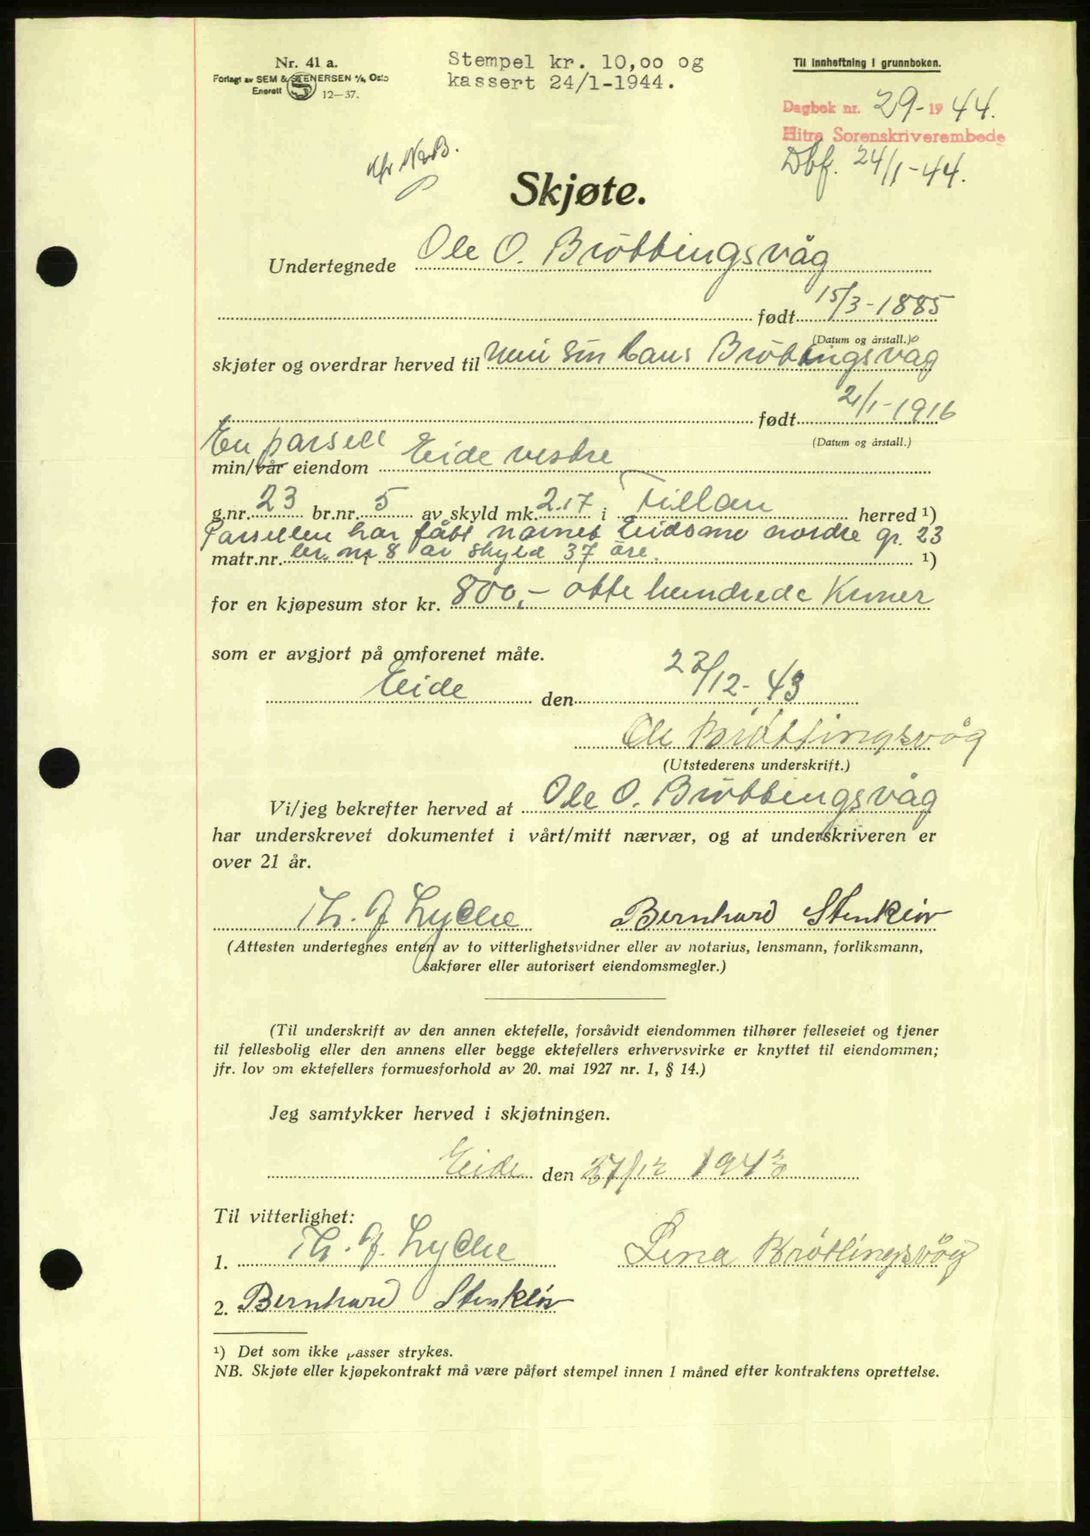 Nr. 41 a.
Forlagt av SEM & STENERSEN A/S, Oslo
Enerett 12—37.
Stempel kr. 10,00 og
kassert 24/1-1944.
Til innheftning i grunnboken.
Dagbok nr. 29 - 1944.
Hitra Sorenskriverembede
Dbf. 24/1-44.
Skjøte.
Undertegnede Ole O. Brøttingsvåg
født 15/3-1885
(Datum og årstall.)
skjøter og overdrar herved til min sønn Hans Brøttingsvåg
født 21/1-1916
(Datum og årstall.)
En parsell
min/vår eiendom Eide vestre
g.nr. 23 br.nr. 5 av skyld mk. 2.17 i Fillan herred ¹)
Parsellen har fått navnet Eidsmo nordre gr. 23
matr.nr. br. nr 8 av skyld 37 øre. ¹)
for en kjøpesum stor kr. 800,- otte hundrede Kroner
som er avgjort på omforenet måte.
Eide den 27/12-43
Ole Brøttingsvåg
(Utstederens underskrift.)
Vi/jeg bekrefter herved at Ole O. Brøttingsvåg
har underskrevet dokumentet i vårt/mitt nærvær, og at underskriveren er
over 21 år.
Th. J. Lycke Bernhard Stenkløv
(Attesten undertegnes enten av to vitterlighetsvidner eller av notarius, lensmann, forliksmann,
sakfører eller autorisert eiendomsmegler.)
(Til underskrift av den annen ektefelle, forsåvidt eiendommen tilhører felleseiet og tjener
til fellesbolig eller den annens eller begge ektefellers erhvervsvirke er knyttet til eiendommen;
jfr. lov om ektefellers formuesforhold av 20. mai 1927 nr. 1, § 14.)
Jeg samtykker herved i skjøtningen.
Eide den 27/12 1943
Til vitterlighet:
1. Th. J. Lycke Lena Brøttingsvåg
2. Bernhard Stenkløv
¹) Det som ikke passer strykes.
NB. Skjøte eller kjøpekontrakt må være påført stempel innen 1 måned efter kontraktens oprettelse.